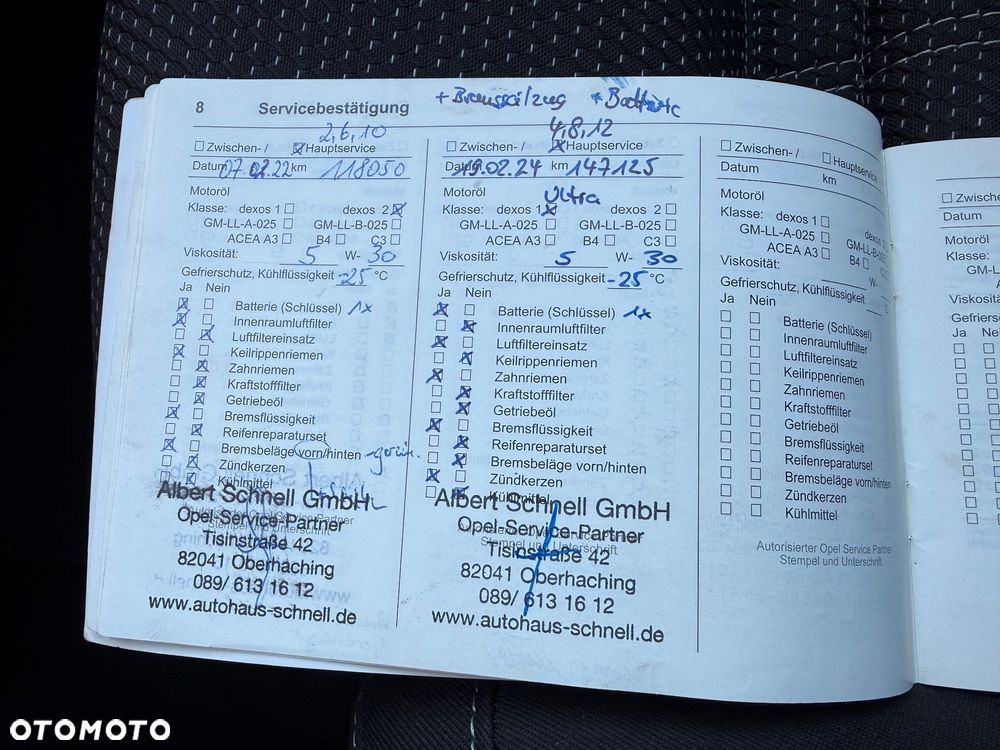 8 Servicebestätigung + Bremssätzung + Batterie
2,6,10
Zwischen-/ Hauptservice
Datum 07.02.22 km 118050
Motoröl
Klasse: dexos 1 dexos 2
GM-LL-A-025 GM-LL-B-025
ACEA A3 B4 C3
Viskosität: 5 W- 30
Gefrierschutz, Kühlflüssigkeit -25 °C
Ja Nein
Batterie (Schlüssel) 1x
Innenraumluftfilter
Luftfiltereinsatz
Keilrippenriemen
Zahnriemen
Kraftstofffilter
Getriebeöl
Bremsflüssigkeit
Reifenreparaturset
Bremsbeläge vorn/hinten
Zündkerzen
Kühlmittel
Albert Schnell GmbH
Opel-Service-Partner
Stempel und Unterschrift
Tisinstraße 42
82041 Oberhaching
089/ 613 16 12
www.autohaus-schnell.de
4,8,12
Zwischen-/ Hauptservice
Datum 19.02.24 km 147125
Motoröl Ultra
Klasse: dexos 1 dexos 2
GM-LL-A-025 GM-LL-B-025
ACEA A3 B4 C3
Viskosität: 5 W- 30
Gefrierschutz, Kühlflüssigkeit -25 °C
Ja Nein
Batterie (Schlüssel) 1x
Innenraumluftfilter
Luftfiltereinsatz
Keilrippenriemen
Zahnriemen
Kraftstofffilter
Getriebeöl
Bremsflüssigkeit
Reifenreparaturset
Bremsbeläge vorn/hinten
Zündkerzen
Kühlmittel
Albert Schnell GmbH
Opel-Service-Partner
Stempel und Unterschrift
Tisinstraße 42
82041 Oberhaching
089/ 613 16 12
www.autohaus-schnell.de
Zwischen-/ Hauptservice
Datum km
Motoröl
Klasse: dexos 1 dexos
GM-LL-A-025 GM-LL-B-025
ACEA A3 B4
Viskosität: W-
Gefrierschutz, Kühlflüssigkeit
Ja Nein
Batterie (Schlüssel)
Innenraumluftfilter
Luftfiltereinsatz
Keilrippenriemen
Zahnriemen
Kraftstofffilter
Getriebeöl
Bremsflüssigkeit
Reifenreparaturset
Bremsbeläge vorn/hinten
Zündkerzen
Kühlmittel
Autorisierter Opel Service Partner
Stempel und Unterschrift
Datum
Motoröl
Klasse:
Ja Nein
OTOMOTO